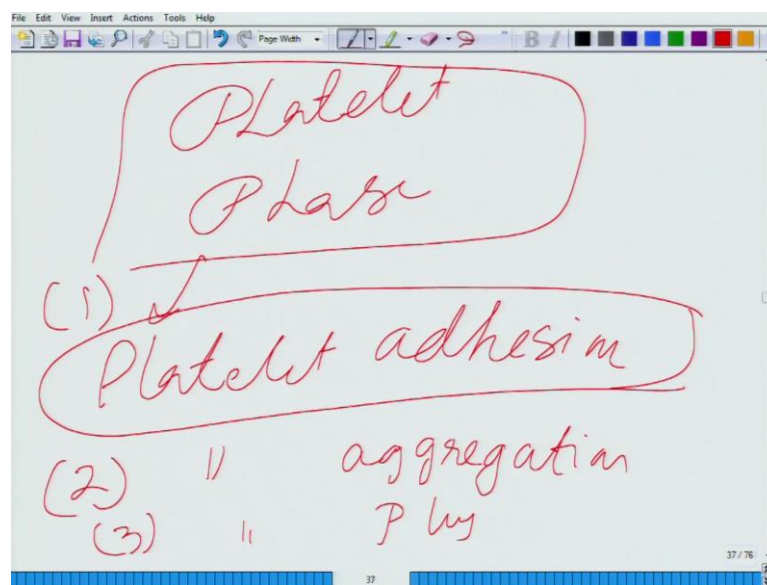 File Edit View Insert Actions Tools Help
Page Width B I
Platelet
Phase
(1)
Platelet adhesion
(2) " aggregation
(3) " Plug
37 / 76
37